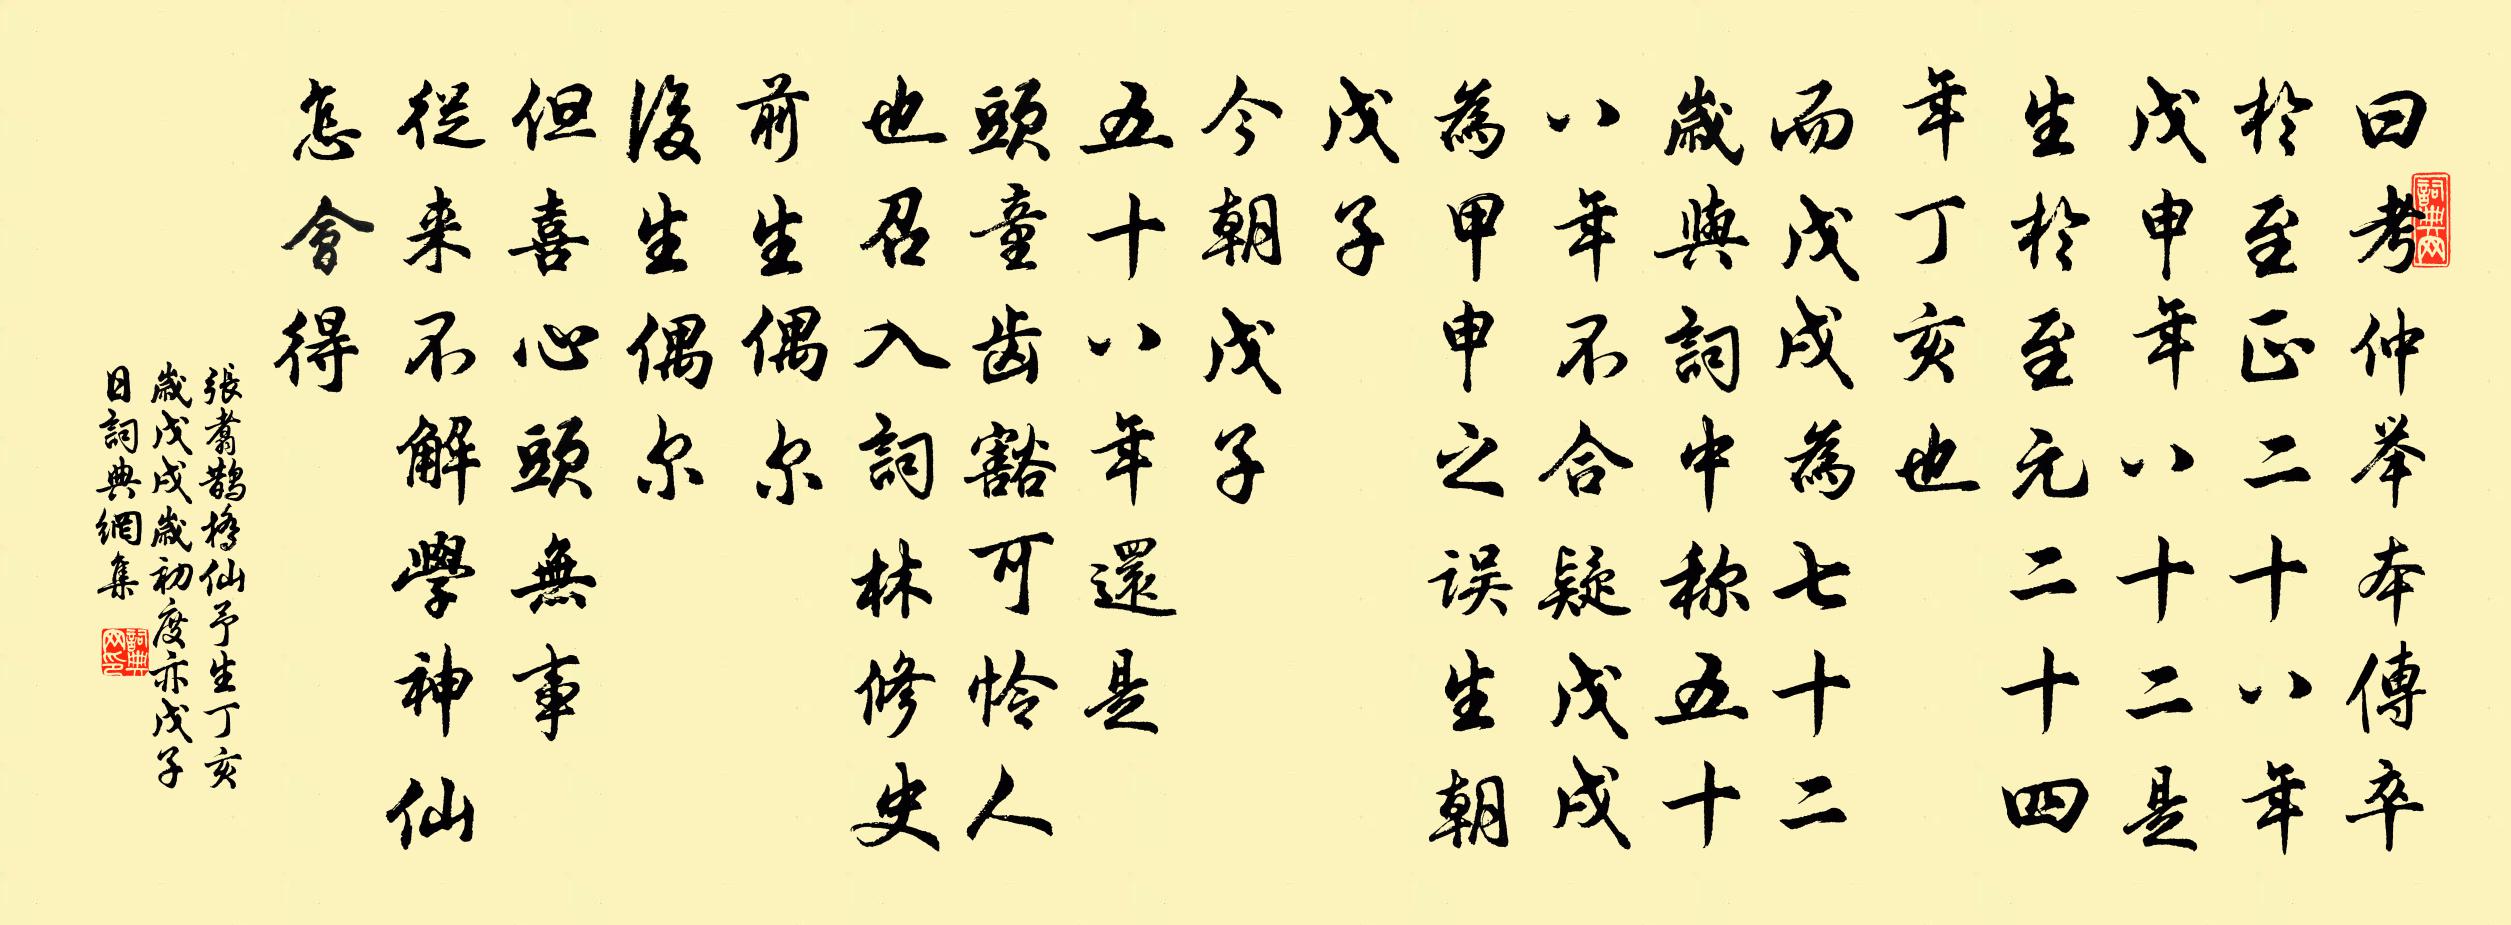 曰考仲举本傳卒
於至正二十八年
戊申年八十二是
生於至元二十四
年丁亥也
而戊戌為七十二
歲與詞中称五十
八年不合疑戊戌
為甲申之误生朝
戊子
今朝戊子
五十八年還是
頭童齿豁可怜人
也召入詞林修史
前生偶尔
後生偶尔
但喜心頭無事
從来不解學神仙
怎會得
張翥鹊橋仙予生丁亥
歲戊戌歲初度亦戊子
日詞典網集
詞典网
詞典网印